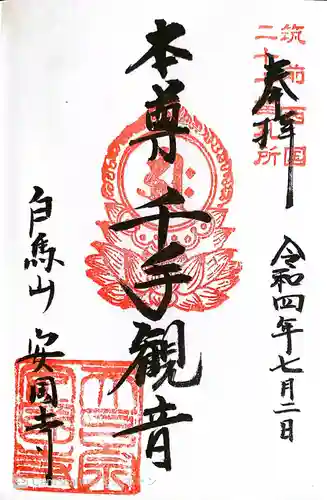 奉拝
筑前西国
二十一番札所
令和四年七月二日
本尊 千手観音
白馬山
安国寺